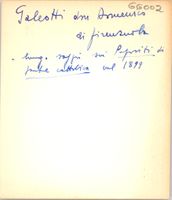 GG002
Galeotti don Domenico
di Firenzuola
- lung. saggi sui Propositi di
parte cattolica nel 1899